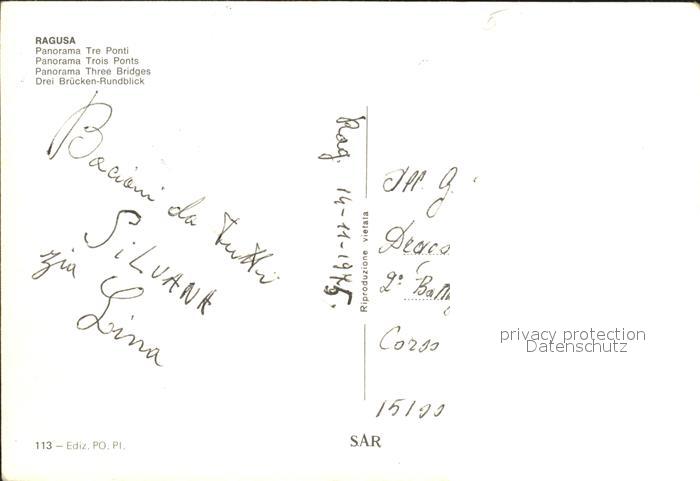 RAGUSA
Panorama Tre Ponti
Panorama Trois Ponts
Panorama Three Bridges
Drei Brücken-Rundblick
Bacioni da tutti
SILVANA
zia Lina
Rag. 14-11-1975.
Riproduzione vietata
2º Batt
Corso
15100
privacy protection
Datenschutz
113 — Ediz. PO. PI.
SAR